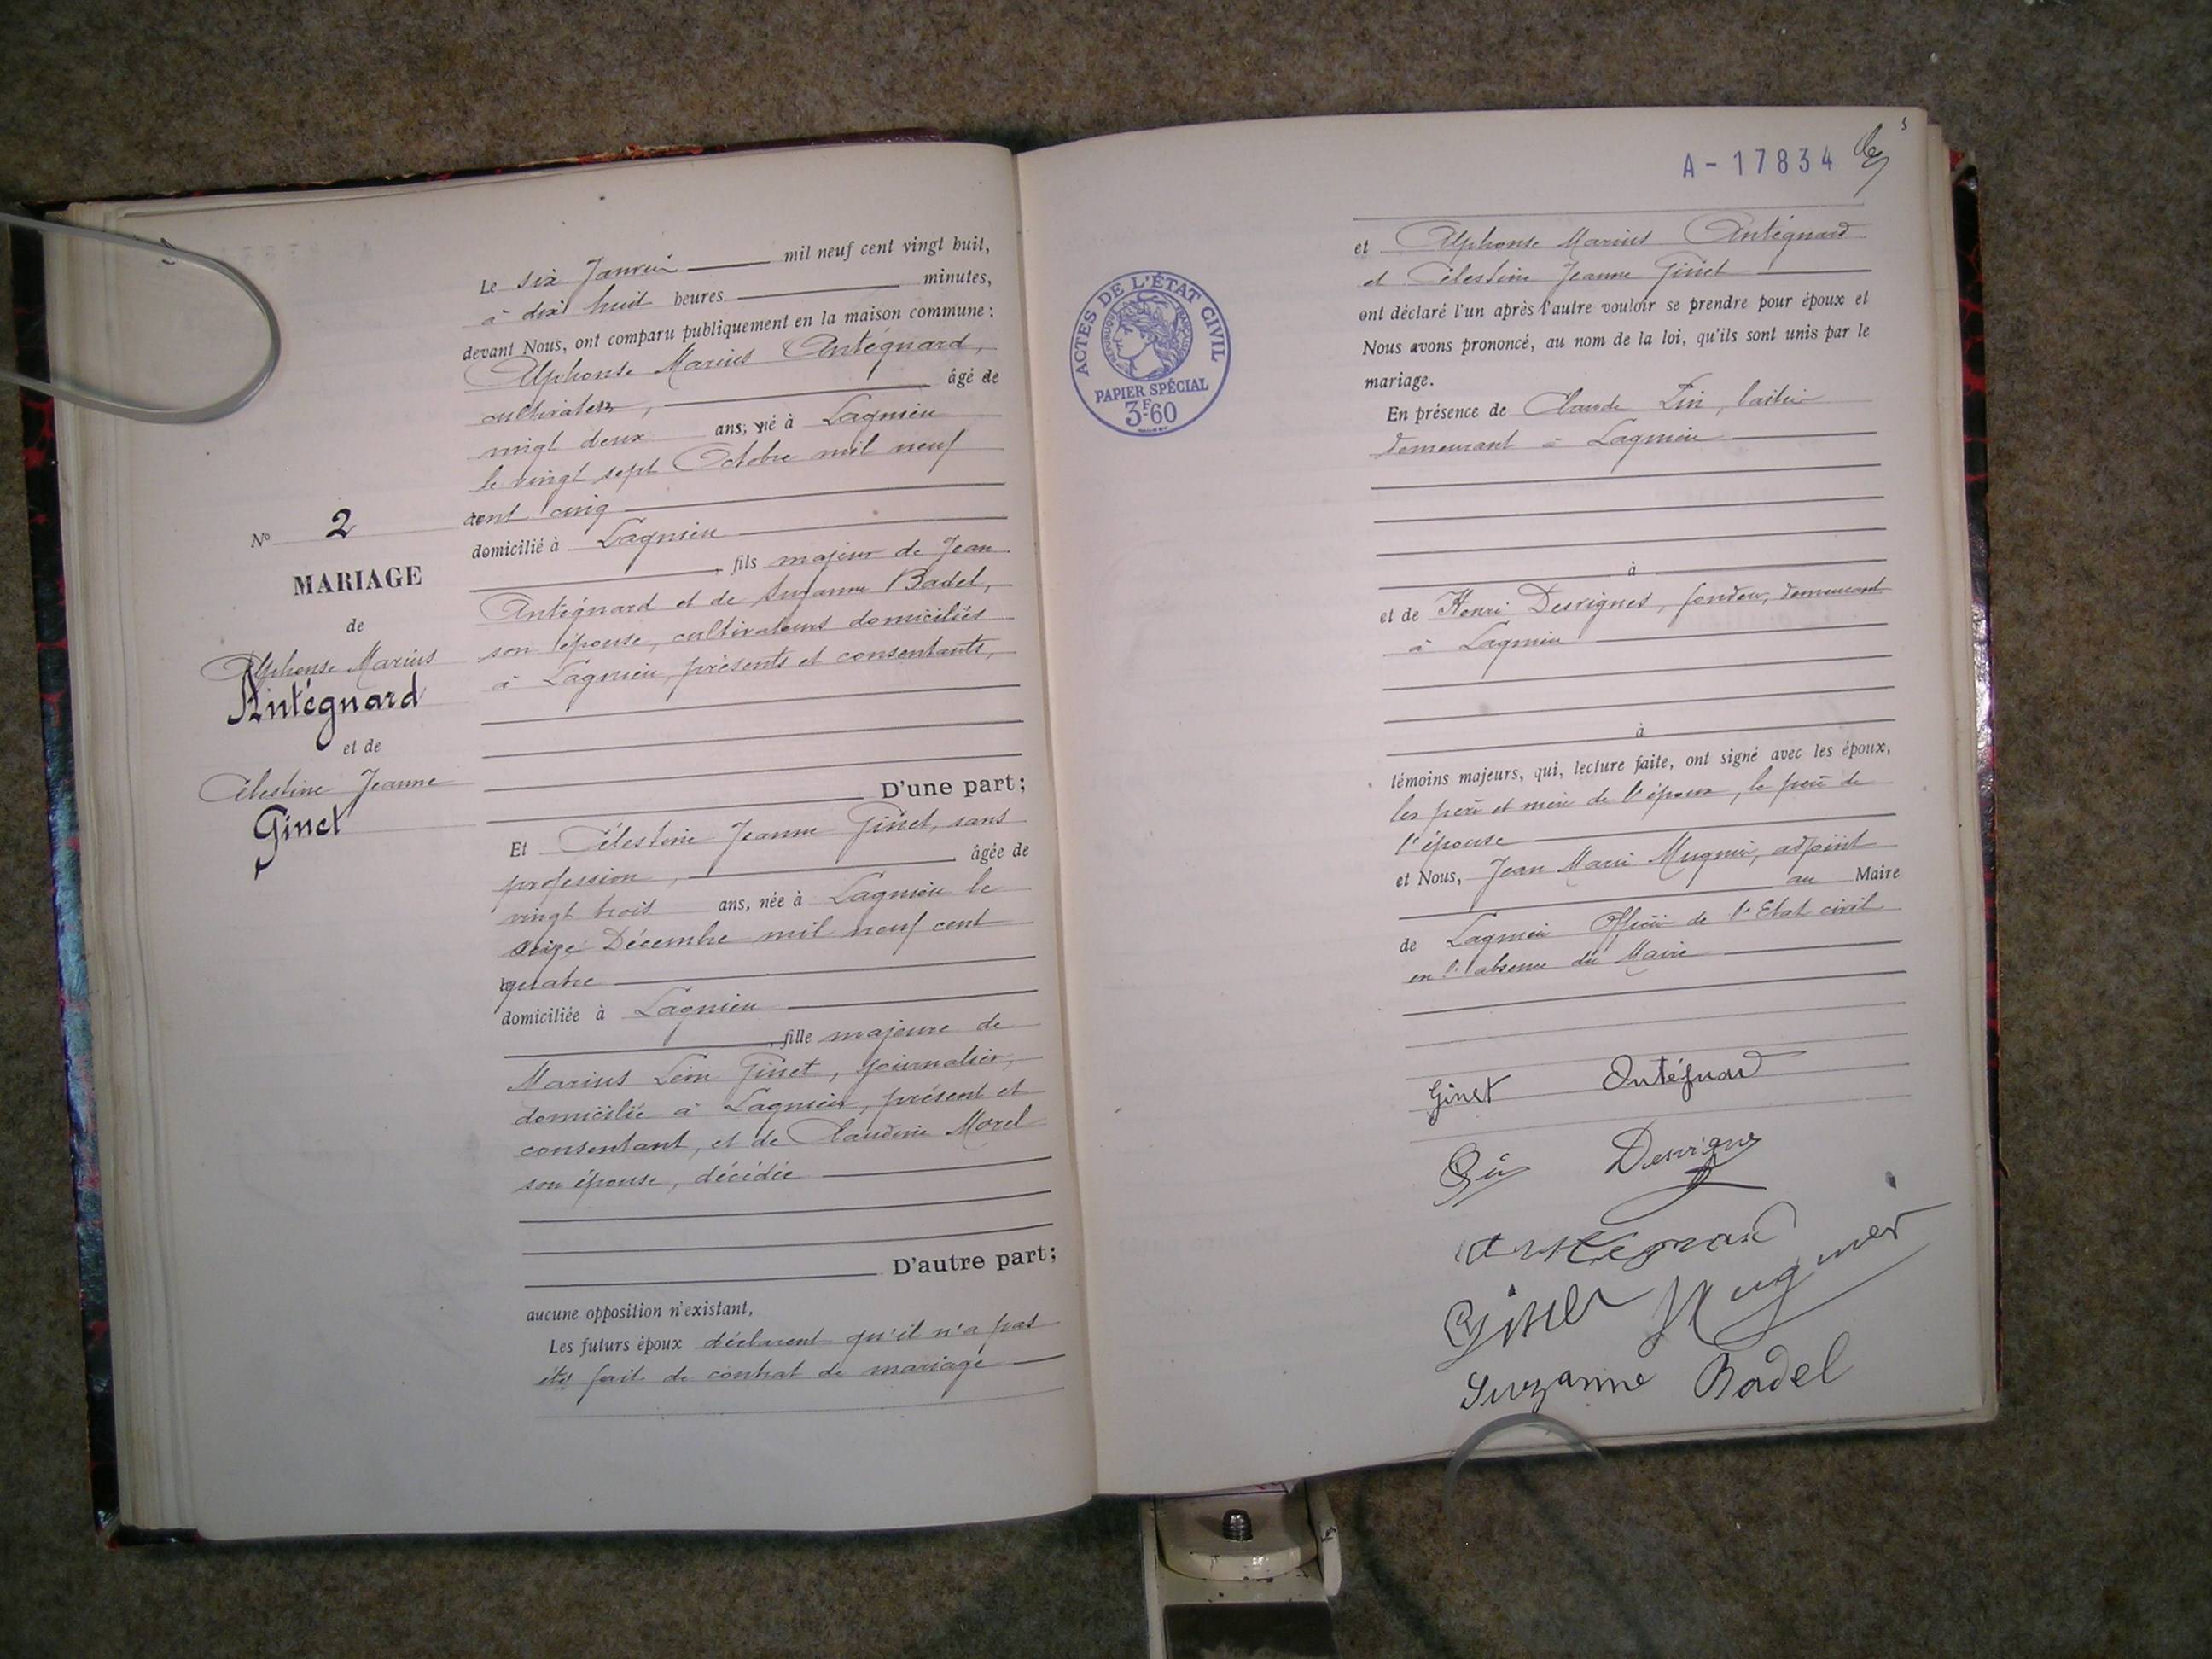 Le six Janvier mil neuf cent vingt huit,
à dix huit heures minutes,
devant Nous, ont comparu publiquement en la maison commune :
Alphonse Marius Antégnard,
cultivateur, âgé de
vingt deux ans, né à Lagnieu
le vingt sept Octobre mil neuf
cent cinq
domicilié à Lagnieu
, fils majeur de Jean
Antégnard et de Suzanne Badel,
son épouse, cultivateurs domiciliés
à Lagnieu, présents et consentants,
D'une part;
Et Célestine Jeanne Ginet, sans
profession, âgée de
vingt trois ans, née à Lagnieu le
seize Décembre mil neuf cent
quatre
domiciliée à Lagnieu
, fille majeure de
Marius Léon Ginet, journalier,
domicilié à Lagnieu, présent et
consentant, et de Claudine Morel
son épouse, décédée
D'autre part;
aucune opposition n'existant,
Les futurs époux déclarent qu'il n'a pas
été fait de contrat de mariage
N° 2
MARIAGE
de
Alphonse Marius
Antégnard
et de
Célestine Jeanne
Ginet
A-17834
ACTES DE L'ÉTAT CIVIL
RÉPUBLIQUE FRANÇAISE
PAPIER SPÉCIAL
3F60
et Alphonse Marius Antégnard
et Célestine Jeanne Ginet
ont déclaré l'un après l'autre vouloir se prendre pour époux et
Nous avons prononcé, au nom de la loi, qu'ils sont unis par le
mariage.
En présence de Claude laitier
demeurant à Lagnieu
à
et de Henri Desvignes, fondeur, demeurant
à Lagnieu
à
témoins majeurs, qui, lecture faite, ont signé avec les époux,
les père et mère de l'époux, le père de
l'épouse
et Nous, Jean Marie Mugnier, adjoint
au Maire
de Lagnieu Officier de l'Etat civil
en l'absence du Maire
Ginet Antégnard
Desvignes
Antégnard
Ginet Mugnier
Suzanne Badel